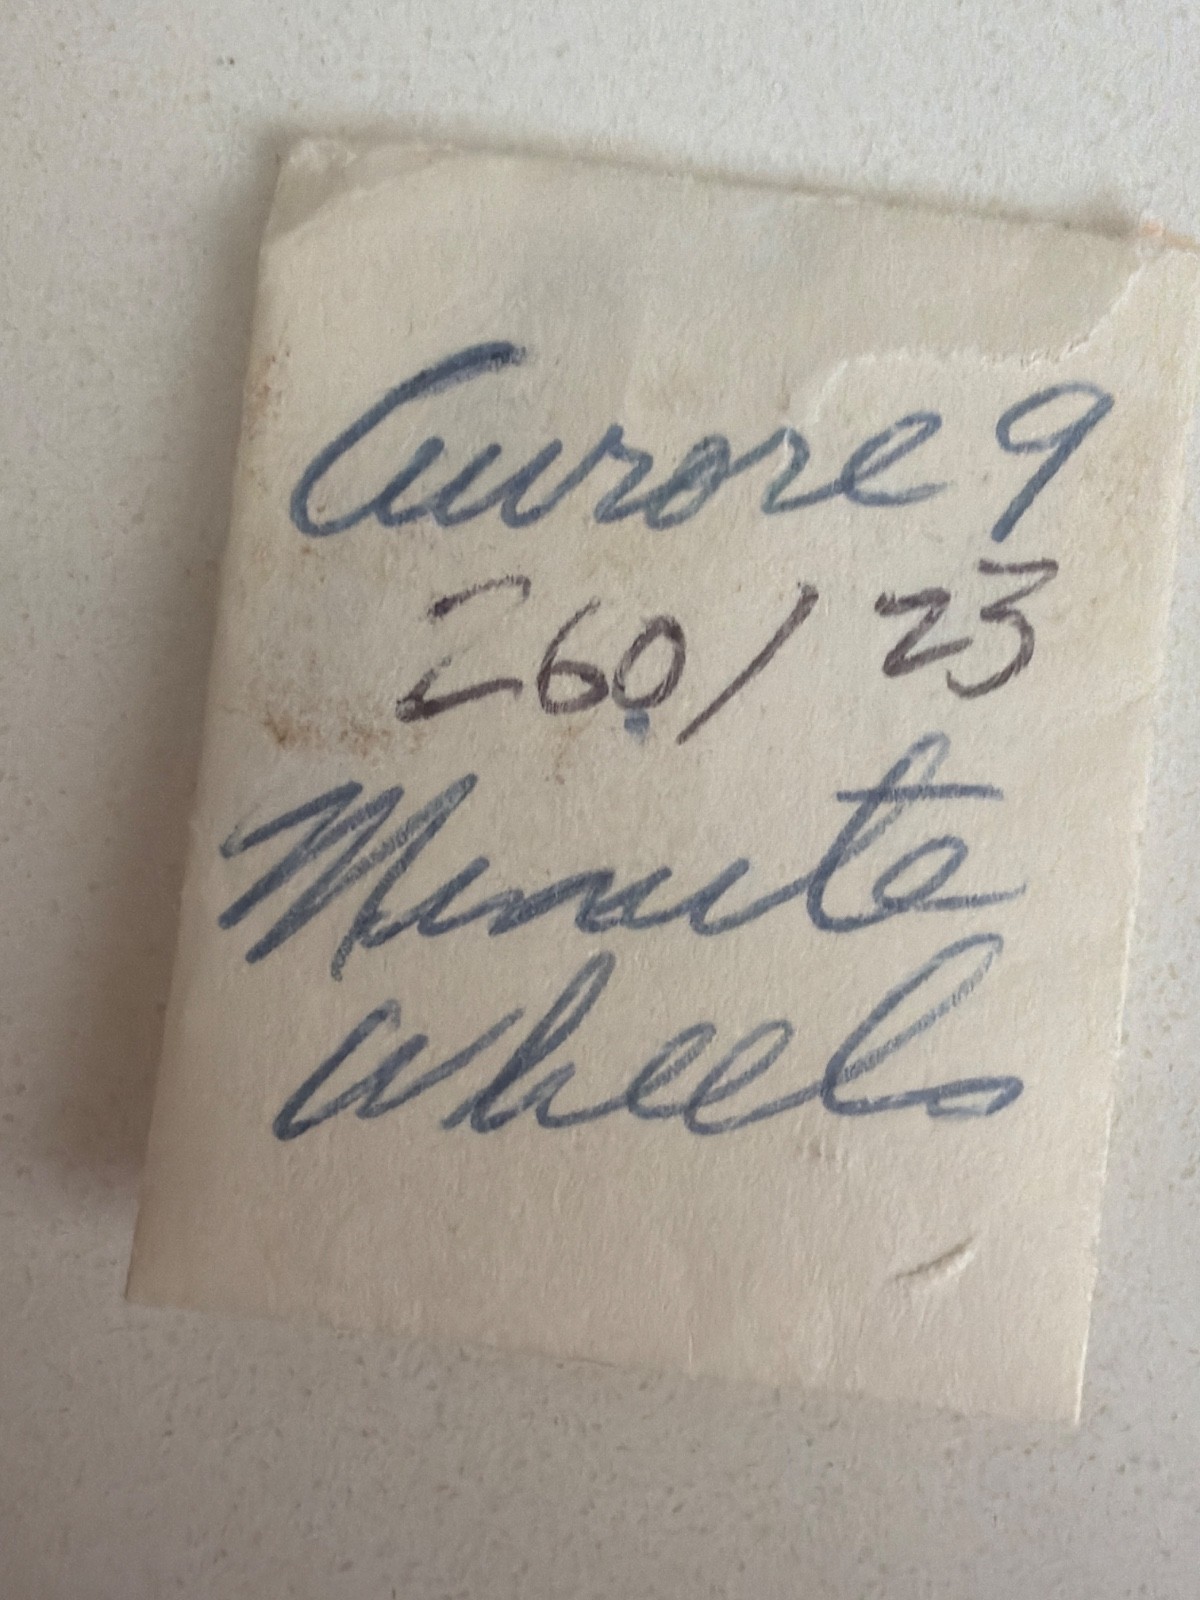 Aurore 9
260/23
Minute
Wheels